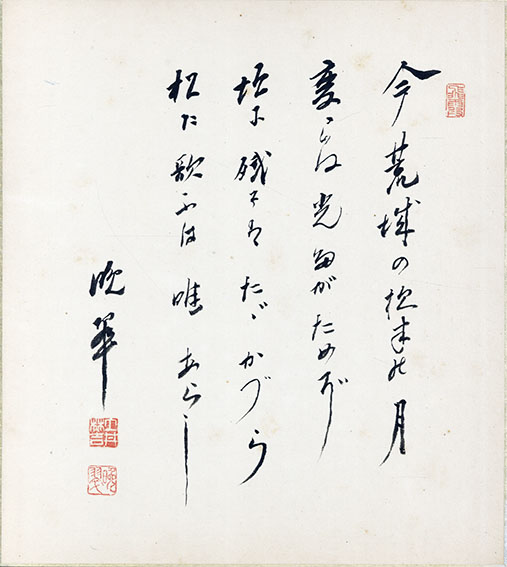 今荒城の夜半の月
変らぬ光誰がためぞ
垣に残るはたゞかづら
松に歌ふは唯あらし
晩翠
土井林吉
晩翠